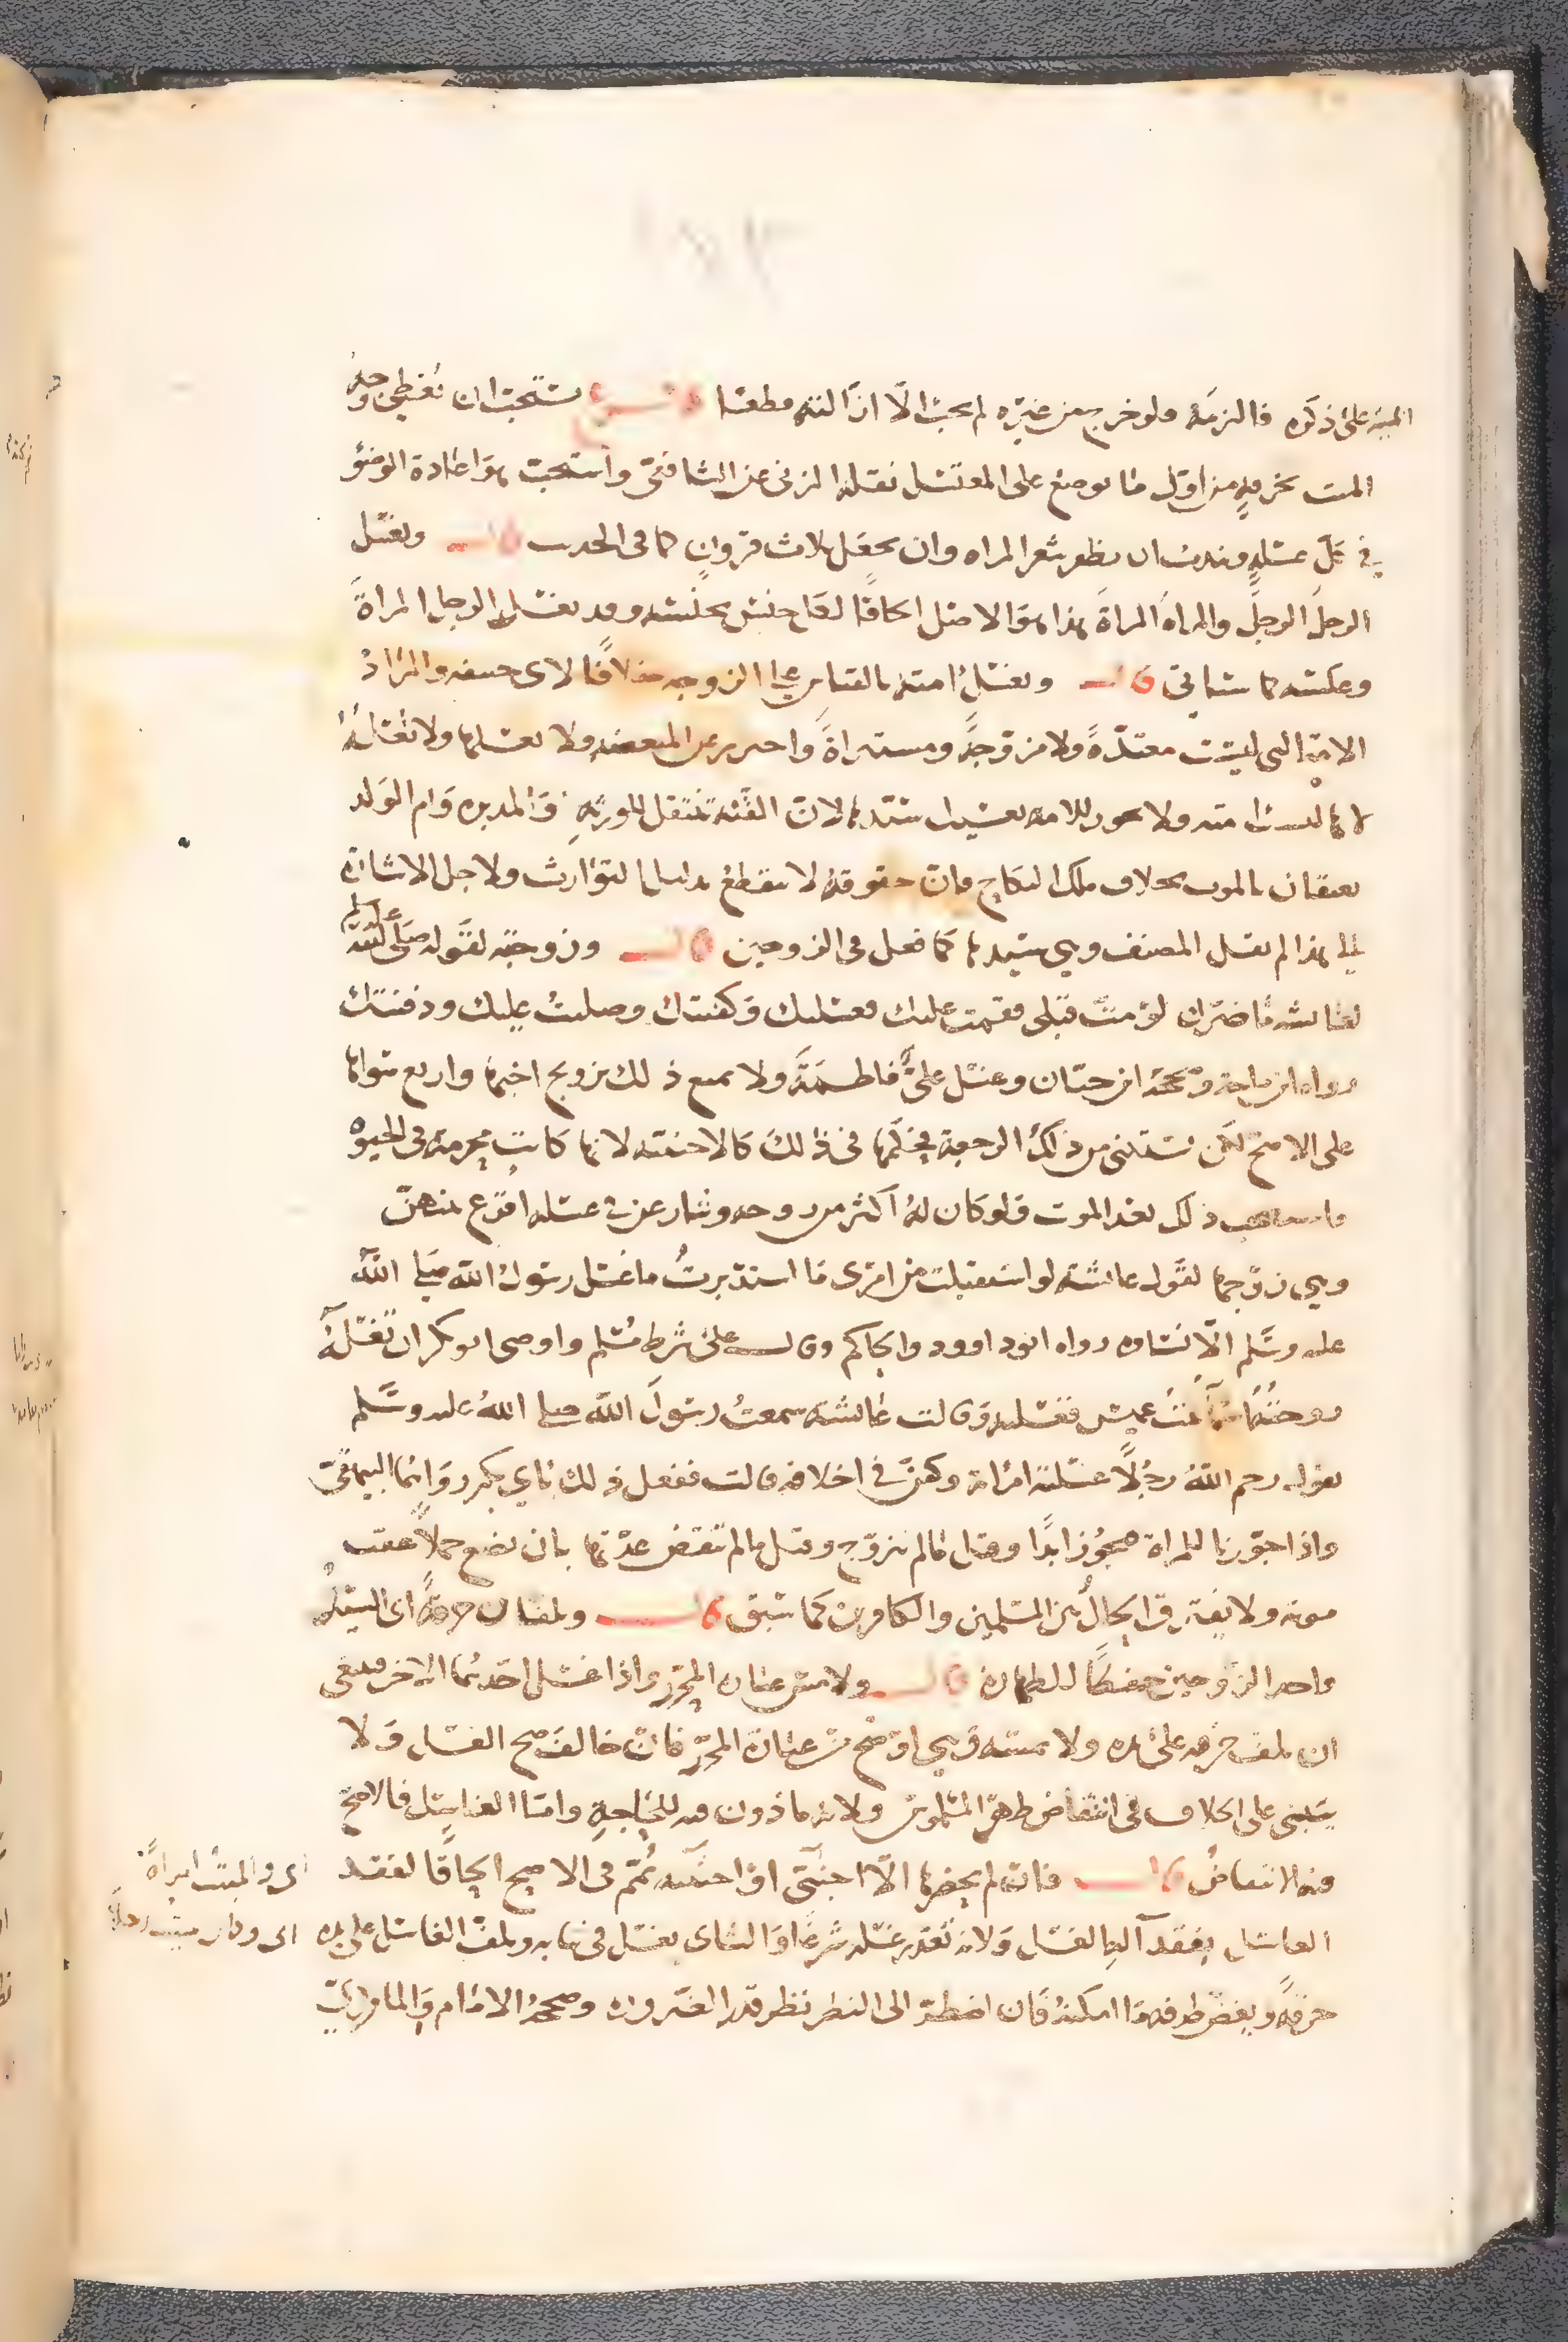 المنيه على ذكره فالزمه ولو خرج من غيره لم يجب الا ازالته قطعا فرع يستحب ان يغطى وجه
الميت بخرقة من اول ما يوضع على المغتسل نقله المزنى عن الشافعى واستحب هو اعادة الوضؤ
فى كل غسله ويندب ان يظفر شعر المراه وان يجعل ثلاث قرون كما فى الحديث قال ويغسل
الرجل الرجل والمراه المراة هذا هو الاصل الحاقا لكل جنس بجنسه وقد يغسل الرجل المراة
وعكسه كما سياتى قال ويغسل امته بالقياس على الزوجه خلافا لابى حنيفه والمراد
الامة التى ليست معتدة ولا مزوجة ومستبراة واحترز عن المبعضه ولا يغسلها ولا تغسله
لانها ليست امته ولا يجوز للامه تغسيل سيدها لان القنه تنتقل للورثة والمدبره وام الولد
يعتقان بالموت بخلاف ملك النكاح فان حقوقه لا تنقطع بدليل التوارث ولاجل الاشارة
الى هذا لم يقل المصنف وهى سيدها كما فعل فى الزوجين قال وزوجته لقوله صلى الله عليه وسلم
لعائشه ما ضرك لو مت قبلى فقمت عليك فغسلتك وكفنتك وصليت عليك ودفنتك
رواه ابن ماجه وصححه ابن حبان وغسل على فاطمة ولا يمنع ذلك تزويج اختها واربع سواها
على الاصح لكن يستثنى من ذلك الرجعية فحكمها فى ذلك كالاجنبيه لانها كانت محرمة فى الحيوة
ذلك بعد الموت فلو كان له اكثر من زوجه وتنازعن فى غسله اقرع بينهن
وهى زوجها لقول عائشة لو استقبلت من امرى ما استدبرت ما غسل رسول الله صلى الله
عليه وسلم الا نساوه رواه ابو داوود والحاكم وقال على شرط مسلم واوصى ابو بكر ان تغسله
زوجته اسما بنت عميس فغسلته وقالت عائشة سمعت رسول الله صلى الله عليه وسلم
يقول رحم الله رجلا غسلته امراته وكفن فى اخلاقه قالت ففعل ذلك بابى بكر رواهما البيهقى
واذا جوزنا للمراة فيجوز ابدا وقيل ما لم تتزوج وقيل ما لم تنقض عدتها بان تضع حملا عقب
موته ولا يفترق الحال بين المسلمين والكافرين كما سبق قال ويلفان خرقة اى السيد
واحد الزوجين حفظا للطهارة قال ولا مس عبارة المحرر واذا غسل احدهما الاخر فينبغى
ان يلف خرقه على يده ولا يمسه وهى اوضح من عبارة المحرر فان خالف صح الغسل ولا
ينبنى على الخلاف فى انتقاض طهر الملموس ولانه ماذون فيه للحاجة واما الغاسل فالاصح
فيه الانتقاض قال فان لم يحضرها الا اجنبى او اجنبيه يمم فى الاصح الحاقا لفقد
الغاسل بفقد آلة الغسل ولانه تعذر غسله شرعا والثانى يغسل فى ثيابه ويلف الغاسل على يده
خرقة ويغض طرفه ما امكنه فان اضطر الى النظر نظر قدر الضروره وصححه الامام والماوردى
اى والميت امراة
اى وكان الميت رجلا